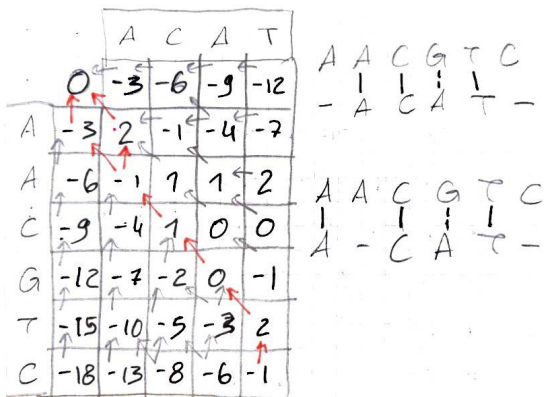 A C A T
0 -3 -6 -9 -12
A -3 2 -1 -4 -7
A -6 -1 1 1 2
C -9 -4 1 0 0
G -12 -7 -2 0 -1
T -15 -10 -5 -3 2
C -18 -13 -8 -6 -1
A A C G T C
- A C A T -
A A C G T C
A - C A T -